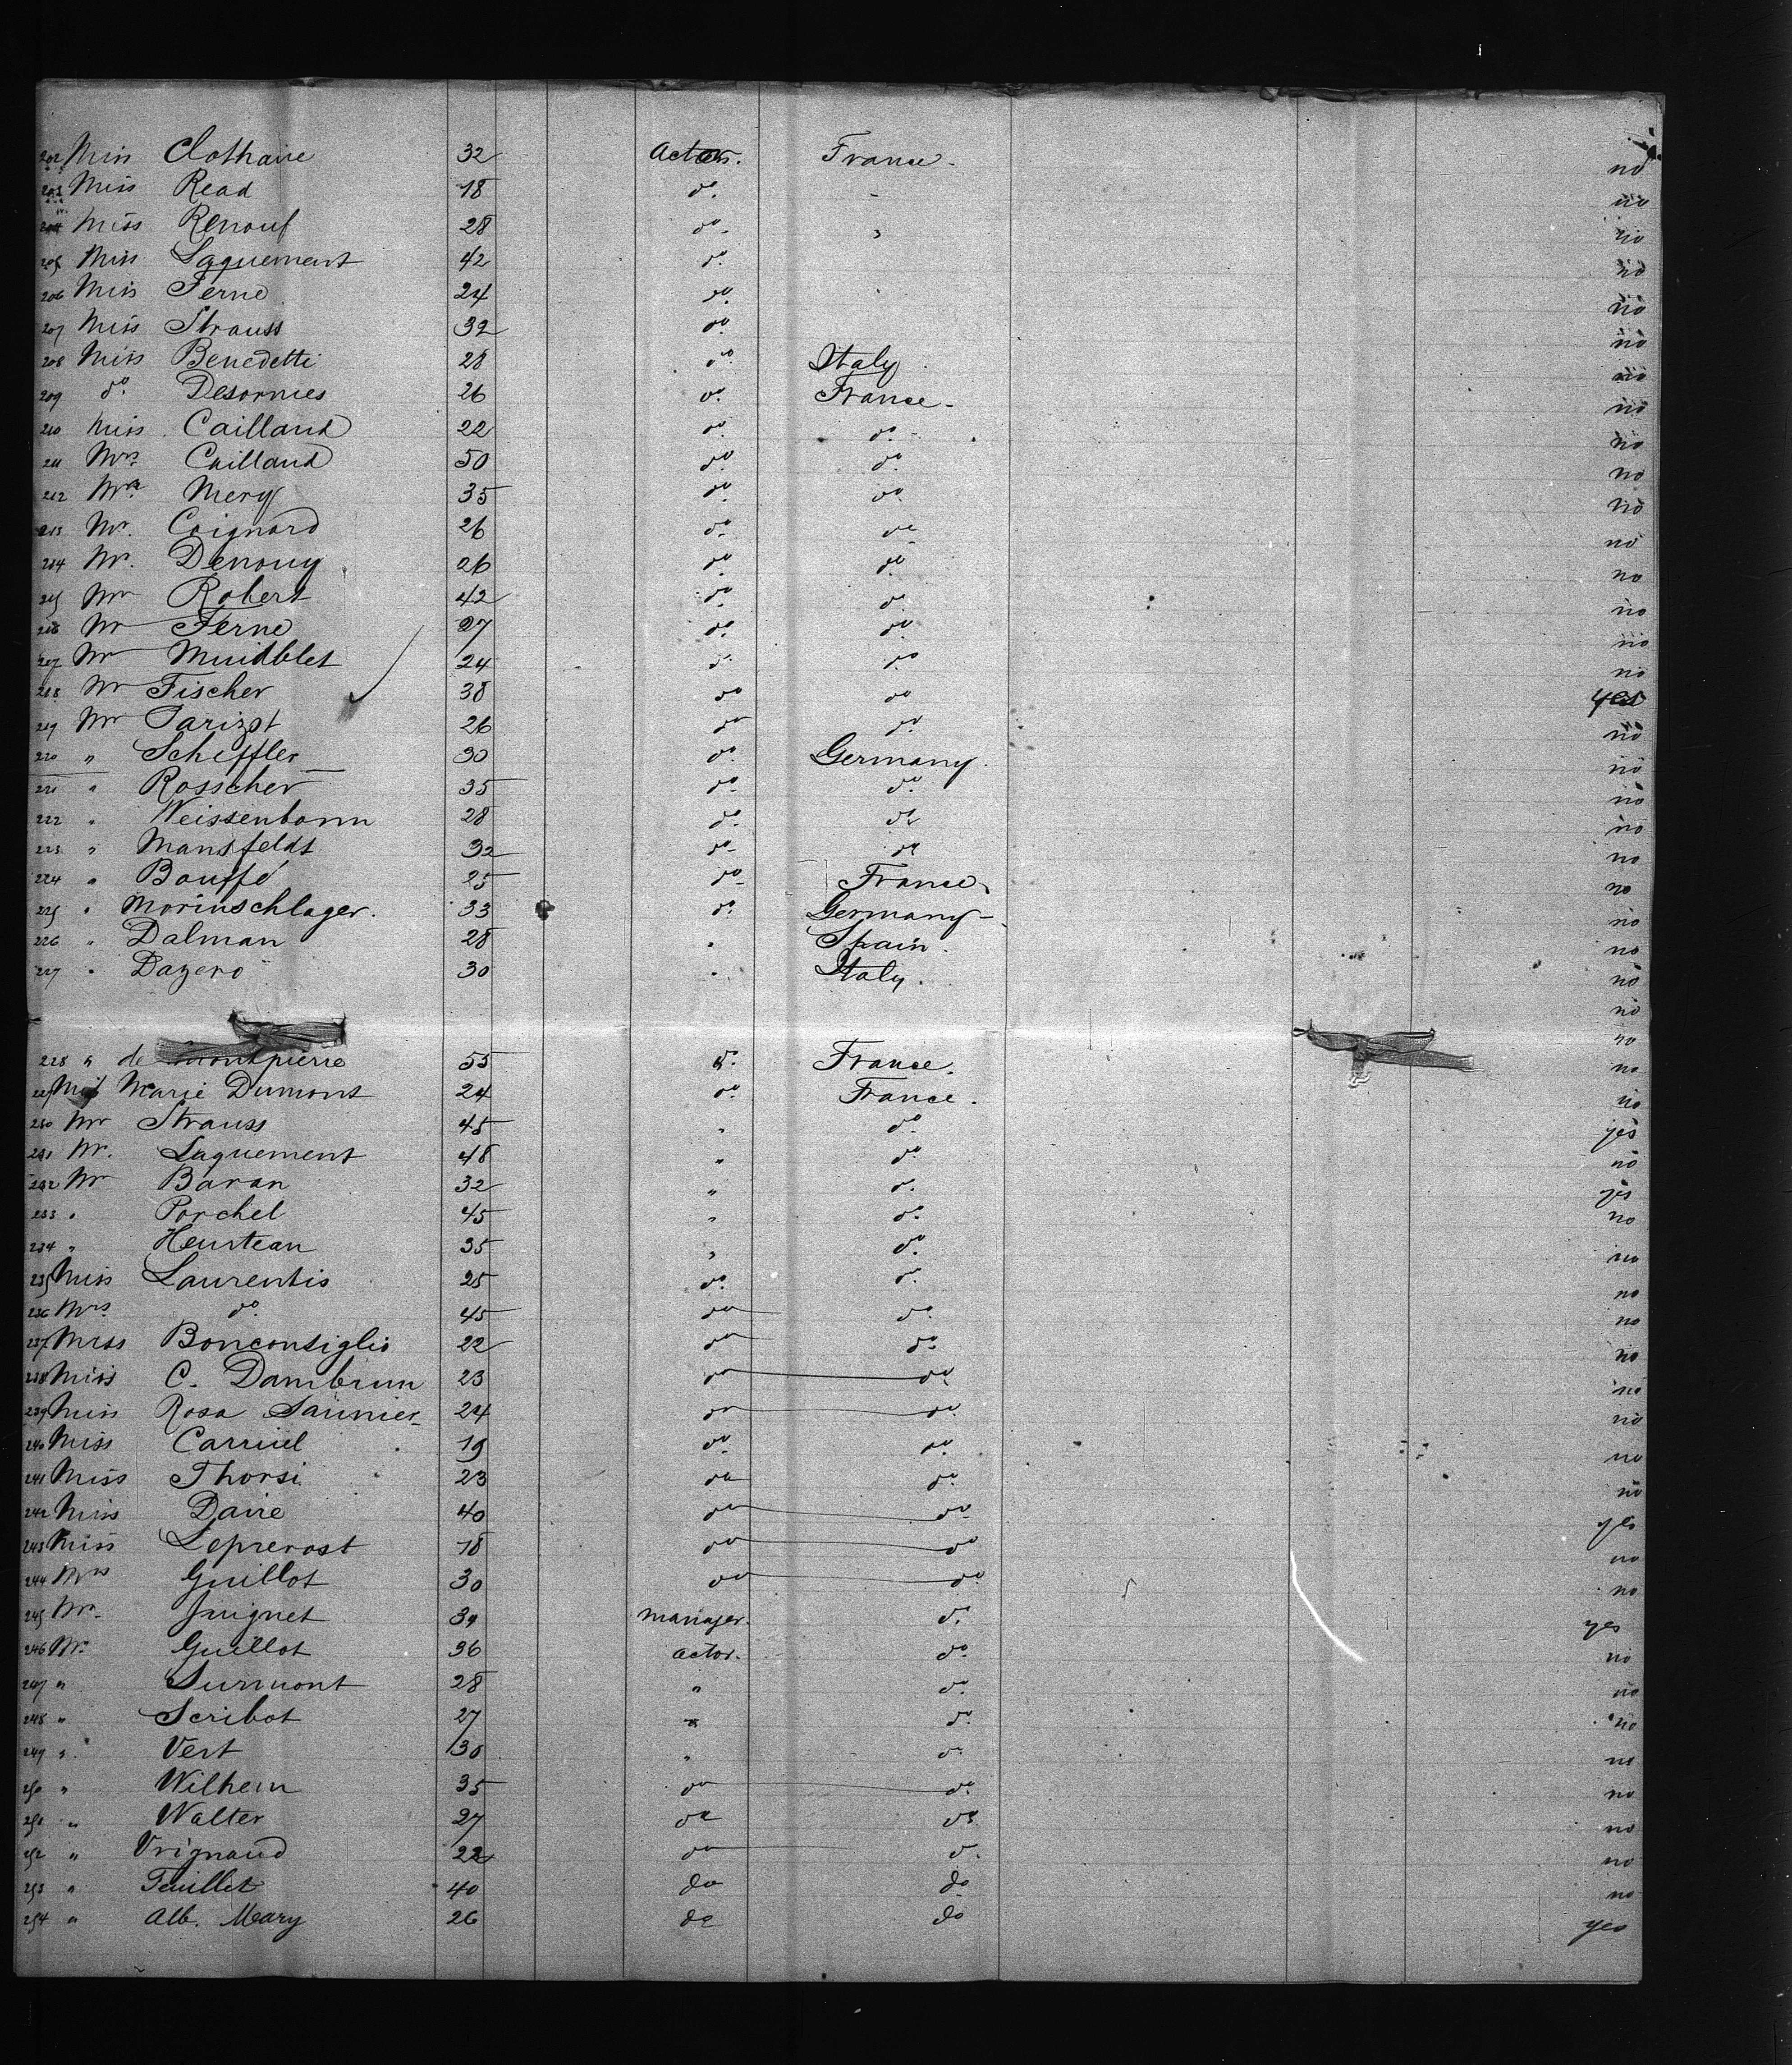 202 Miss Clothaire 32 Actors. France. no
203 Miss Read 18 do. " no
204 Miss Renouf 28 do. " no
205 Miss Laquement 42 do. no
206 Miss Ferne 24 do. no
207 Miss Strauss 32 do. no
208 Miss Benedetti 28 do. Italy no
209 do. Desormes 26 do. France. no
210 Miss Cailland 22 do. do. no
211 Mrs. Cailland 50 do. do. no
212 Mrs. Mery 35 do. do. no
213 Mr. Coignard 26 do. do. no
214 Mr. Denouy 26 do. do. no
215 Mr Robert 42 do. do. no
216 Mr Ferne 27 do. do. no
217 Mr Muidblet 24 do. do. no
218 Mr Fischer 38 do do yes
219 Mr Parizot 26 do do. no
220 " Scheffler 30 do. Germany. no
221 " Rosscher 35 do. do. no
222 " Weissenborn 28 do. do no
223 " Mansfeldt 32 do. do no
224 " Bouffé 25 do. France. no
225 " Morinschlager. 33 do. Germany. no
226 " Dalman 28 " Spain. no
227 " Dazero 30 " Italy. no
no
no
228 " de Montpierre 55 do. France. no
229 Miss Marie Dumont 24 do. France. no
230 Mr Strauss 45 " do. yes
231 Mr. Laquement 48 " do. no
232 Mr Baran 32 " do. yes
233 " Porchel 45 " do. no
234 " Heusteau 35 " do. no
235 Miss Laurentis 25 do. do. no
236 Mrs. do. 45 do do. no
237 Miss Bonconsiglio 22 do do. no
238 Miss C. Dambrun 23 do do. no
239 Miss Rosa Saunier 24 do do. no
240 Miss Carriel 19 do. do. no
241 Miss Thorsi 23 do do. no
242 Miss Daire 40 do do. yes
243 Miss Leprevost 18 do do no
244 Mrs Guillot 30 do do. no
245 Mr. Juignet 34 manager. do. yes
246 Mr. Guillot 36 actor. do. no
247 " Surmont 28 " do. no
248 " Scribot 27 " do. no
249 " Vert 30 " do. no
250 " Wilhem 35 do do. no
251 " Walter 27 do do. no
252 " Vrignaud 22 do do. no
253 " Feuillet 40 do do no
254 " Alb. Mary 26 do do yes